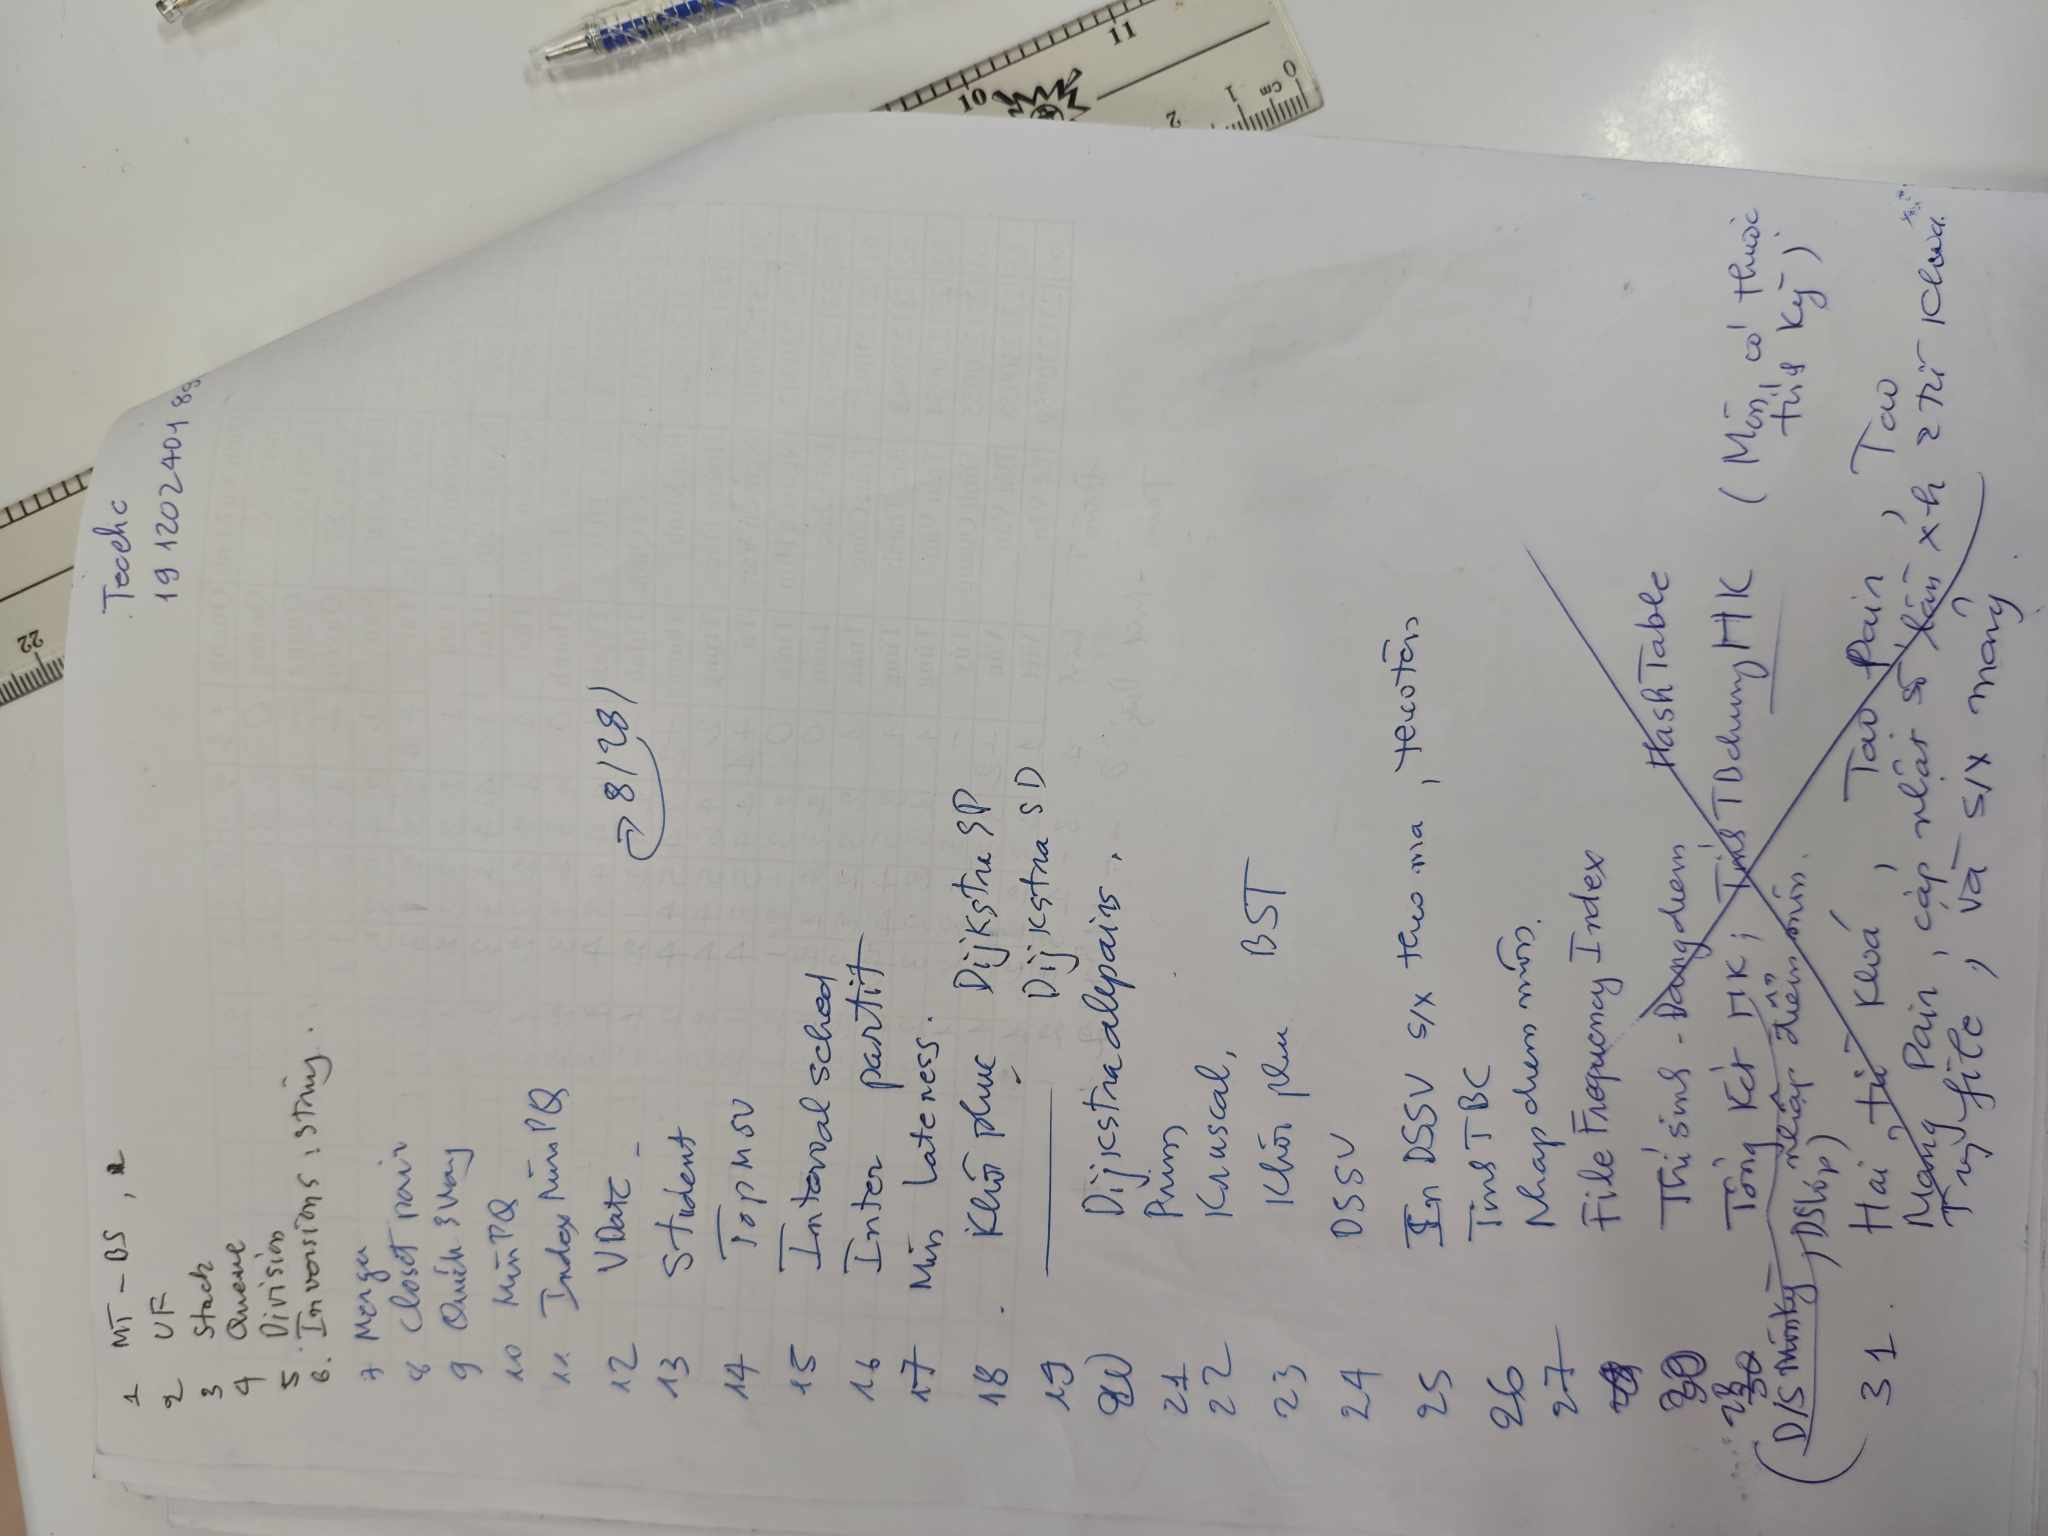 Tecehc
19 1202401 89
1 MT - BS,
2 UF
3 Stack
4 Queue
5 Division
6. Inversions: String.
7 Merge
8 Closet pair
9 Quick 3 Way
10 Min PQ
11. Index Min PQ
12 VDate
8/28/
13 Student
14 Top M SV
15 Interval sched
16 Inter partit
17 Min Lateness.
18 . Khôi phục Dijkstra SP
19 Dijkstra SD
20 Dijkstra allpairs.
21 Prim
22 Kruscal,
23 Khôi phu BST
24 DSSV
25 In DSSV s/x theo ma, theo tên
26 Tinh TBC
27 Nhap diem môn.
File Frequency Index
30 Thí sinh - Dang diem Hash Table
Tổng Kết HK; Tính TB chung HK (Môn có thuộc
(D/S Mônkỳ, nhập điểm môn. tính Kỳ)
, DSlớp)
31. Hai từ khoá, Tao Pair, Tao
Mang Pair, cập nhật số lần x h 2 từ khoá
Trg file, và s/x mang.
22
10
11
2
1
0
cm